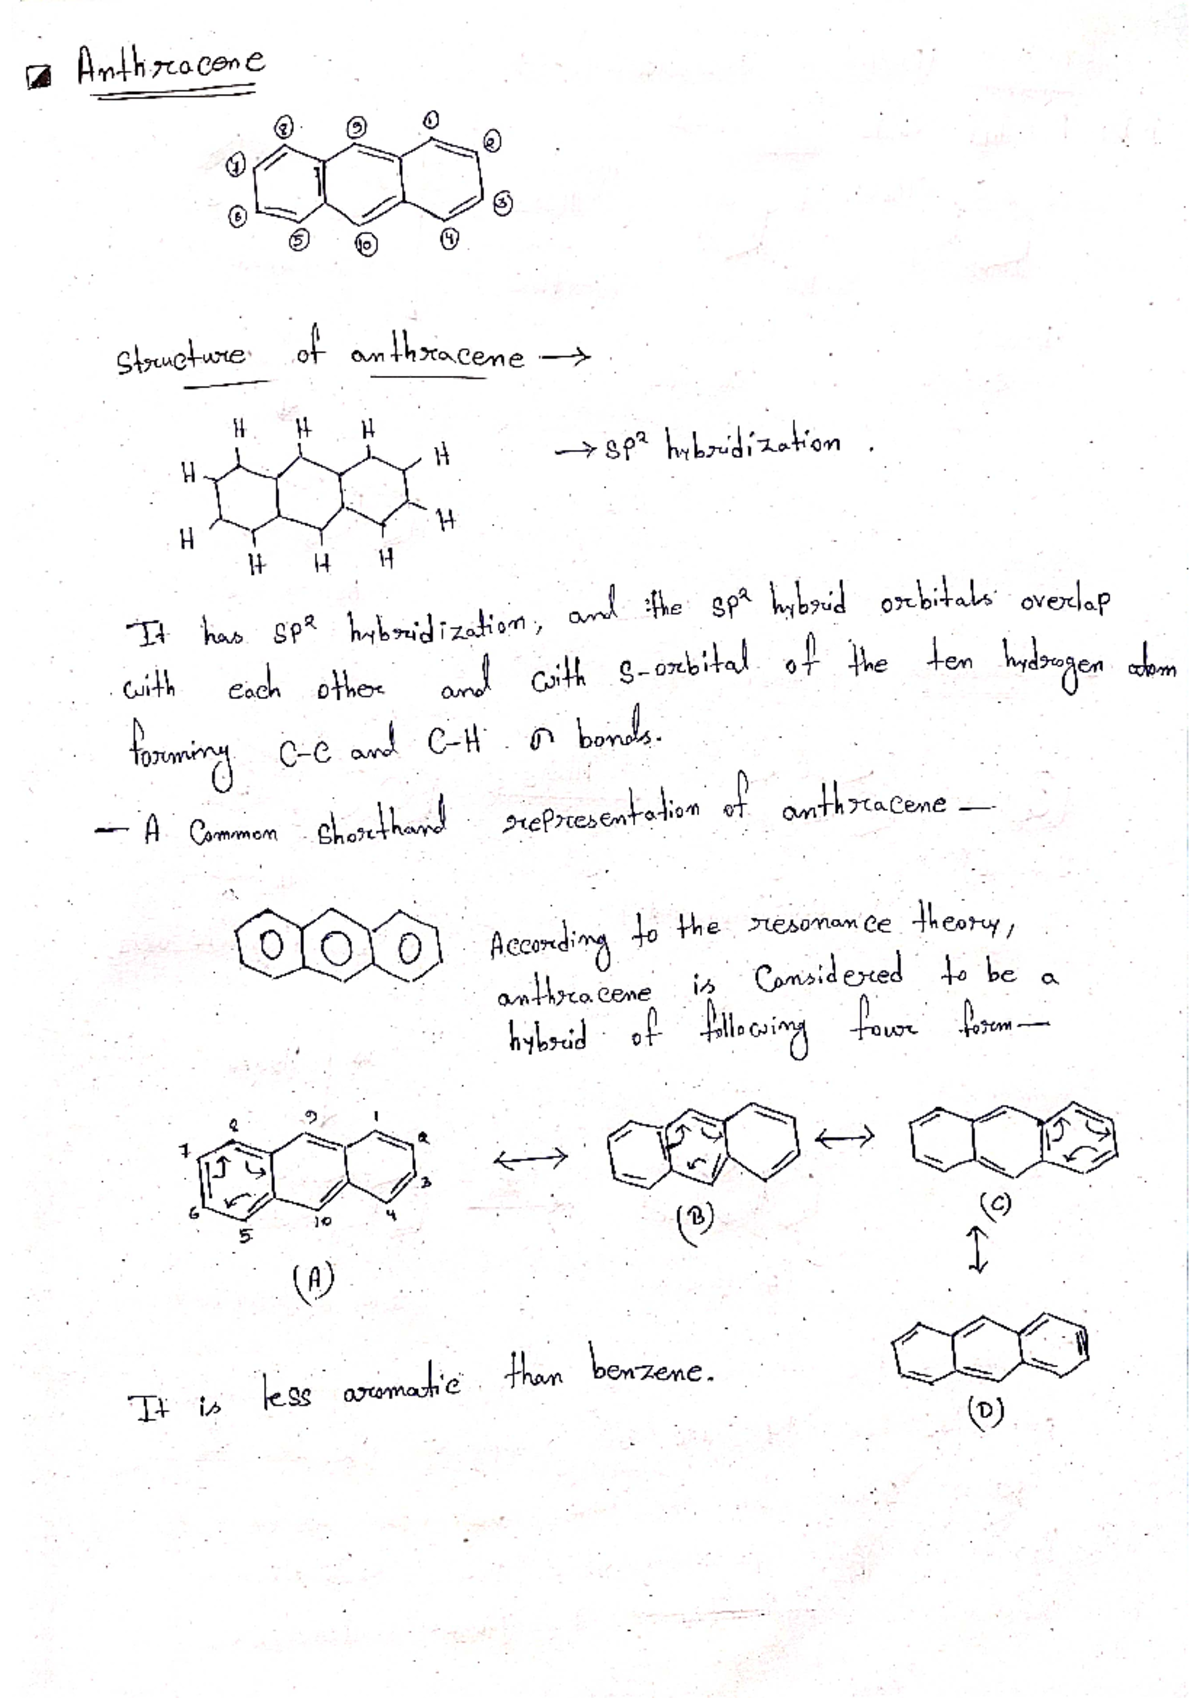 Anthracene
8 9 1
7 2
6 3
5 10 4
Structure of anthracene →
H H H
H H
→ SP² hybridization .
H H
H H H
It has SP² hybridization, and the SP² hybrid orbitals overlap
with each other and with S-orbital of the ten hydrogen atom
forming C-C and C-H σ bonds.
— A Common Shorthand representation of anthracene —
According to the resonance theory,
anthracene is Considered to be a
hybrid of following four form —
8 9 1
7 2
6 3
5 10 4
(A)
(B)
(C)
It is less aromatic than benzene.
(D)